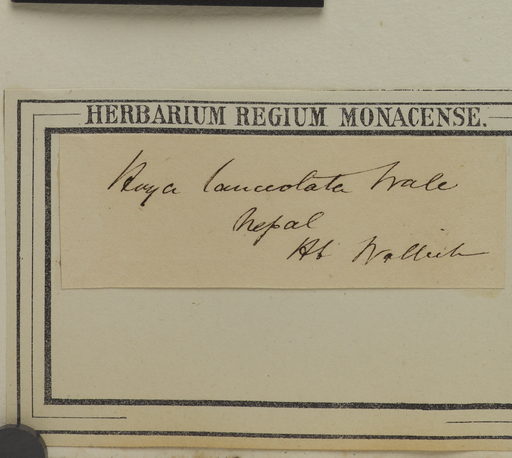 HERBARIUM REGIUM MONACENSE.
Hoya lanceolata Wall
Nepal
Hb Wallich